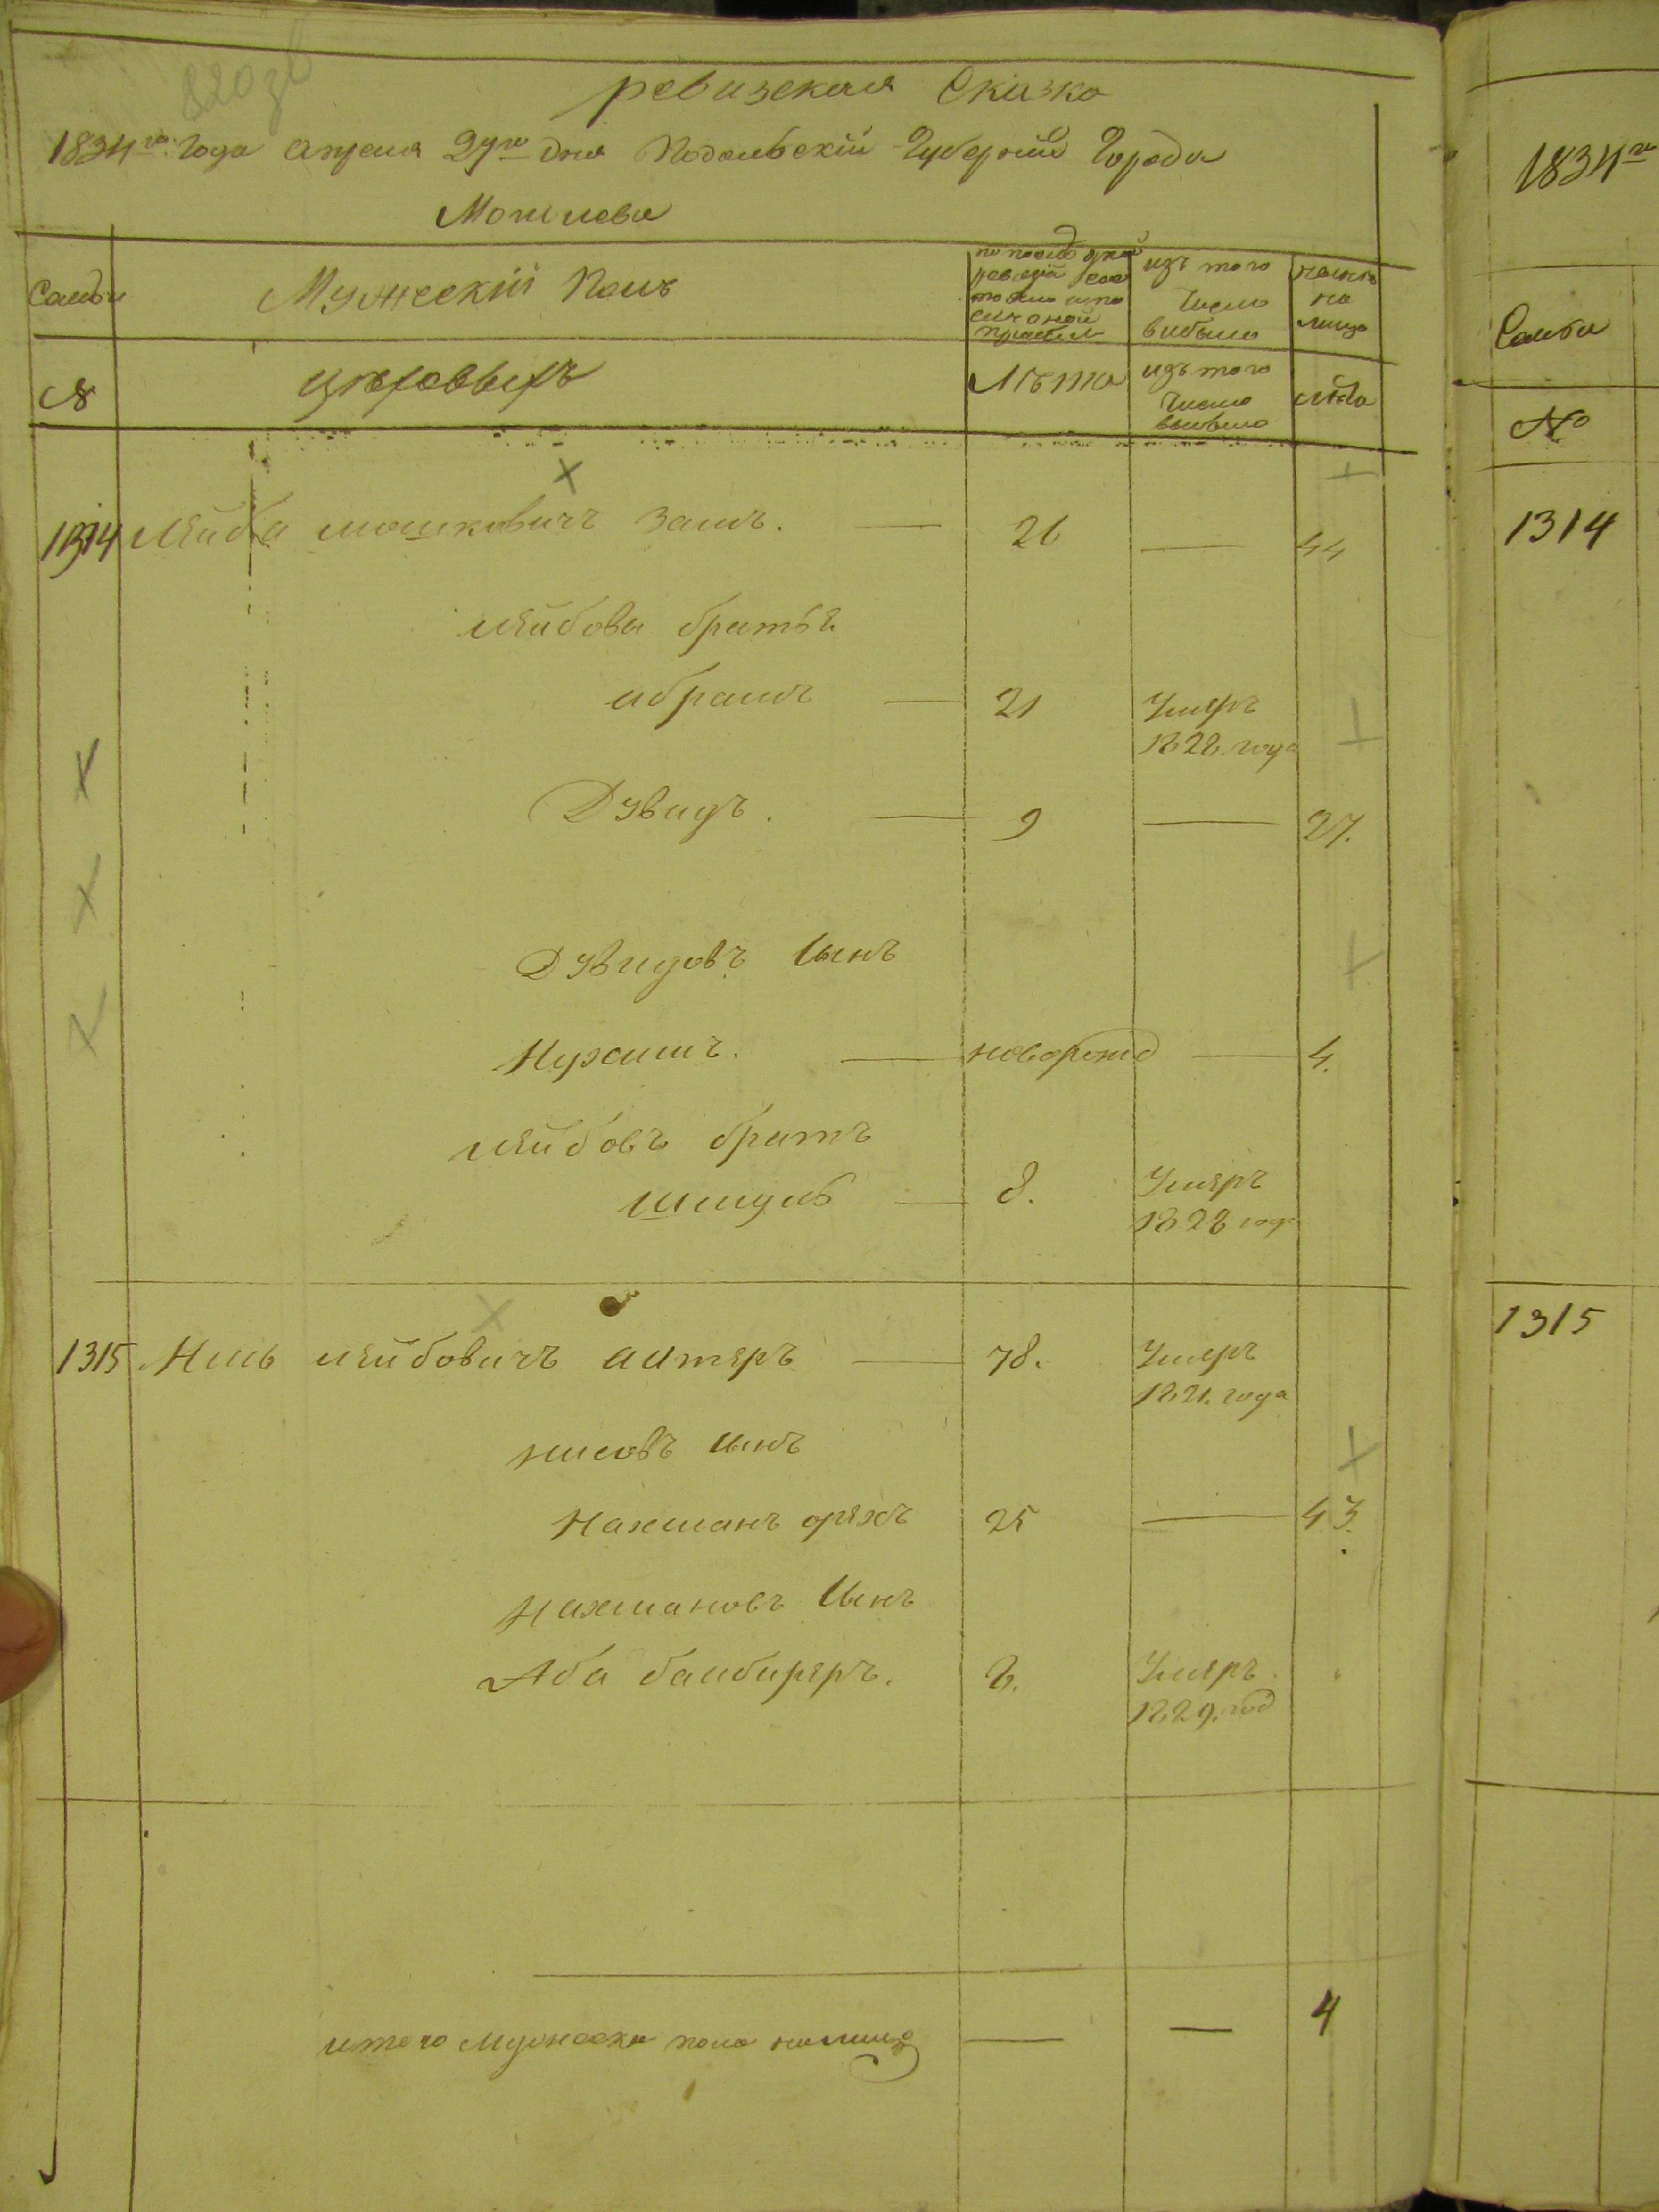 ревизская Сказка
1834го Года апреля 29го дня Подольскiй Губернии Города
Могилева
1834го
Семьи
Мужескiй Полъ
по последней ревизiи состояло и после оной прибыло
изъ того числа выбыло
ныне на лицо
Семьи
№
Лѣта
изъ того числа выбыло
лѣта
№
1314 Лейба Мошковичъ Замъ. — 26 — 44
1314
Лейбовы братья
Абрамъ — 21 Умеръ
1828. года
Дувидъ. — 9 — 27.
Дувидовъ сынъ
Нухимъ. — новорожд — 4.
Лейбовъ братъ
Шмуль — 8. Умеръ
1828 года
1315 Нись Лейбовичъ Алтеръ — 78. Умеръ
1821. года
1315
Нисовъ сынъ
Нахманъ орехъ 25 — 43.
Нахмановъ сынъ
Аба Бамбиреръ. 6. Умеръ
1829. год
итого мужеска пола налицо — — 4